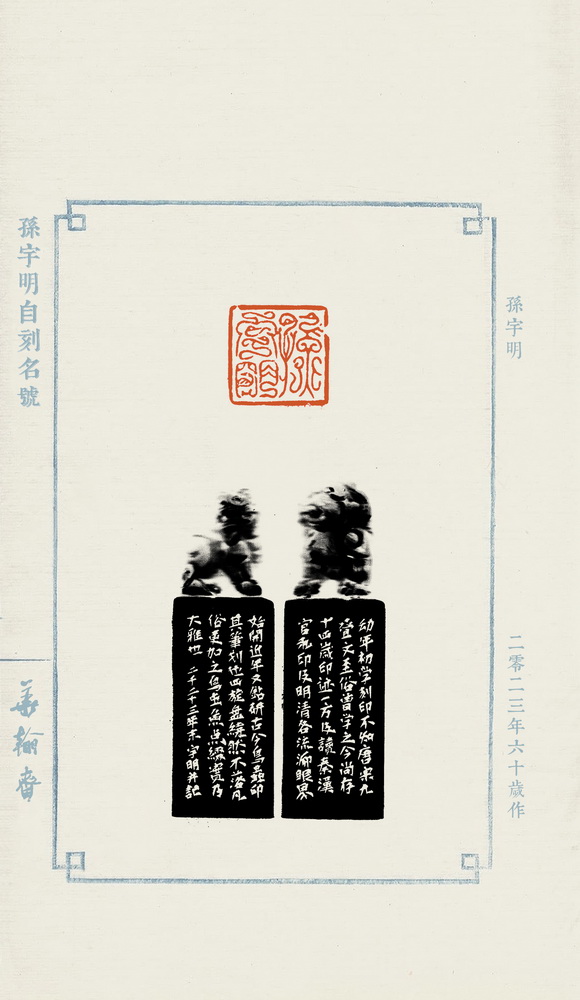 孫宇明
二零二三年六十歲作
孫宇明
幼年初学刻印不知唐宋九
疊文至俗曾学之今尚存
十四歲印迹一方後讀秦漢
官私印及明清各流派眼界
始開近年又鉆研古今鳥蟲印
其筆刻也曲旋盘繞然不落凡
俗更加之鳥虫魚点綴實乃
大雅也 二千二十三年末宇明并記
孫宇明自刻名號
翰齋